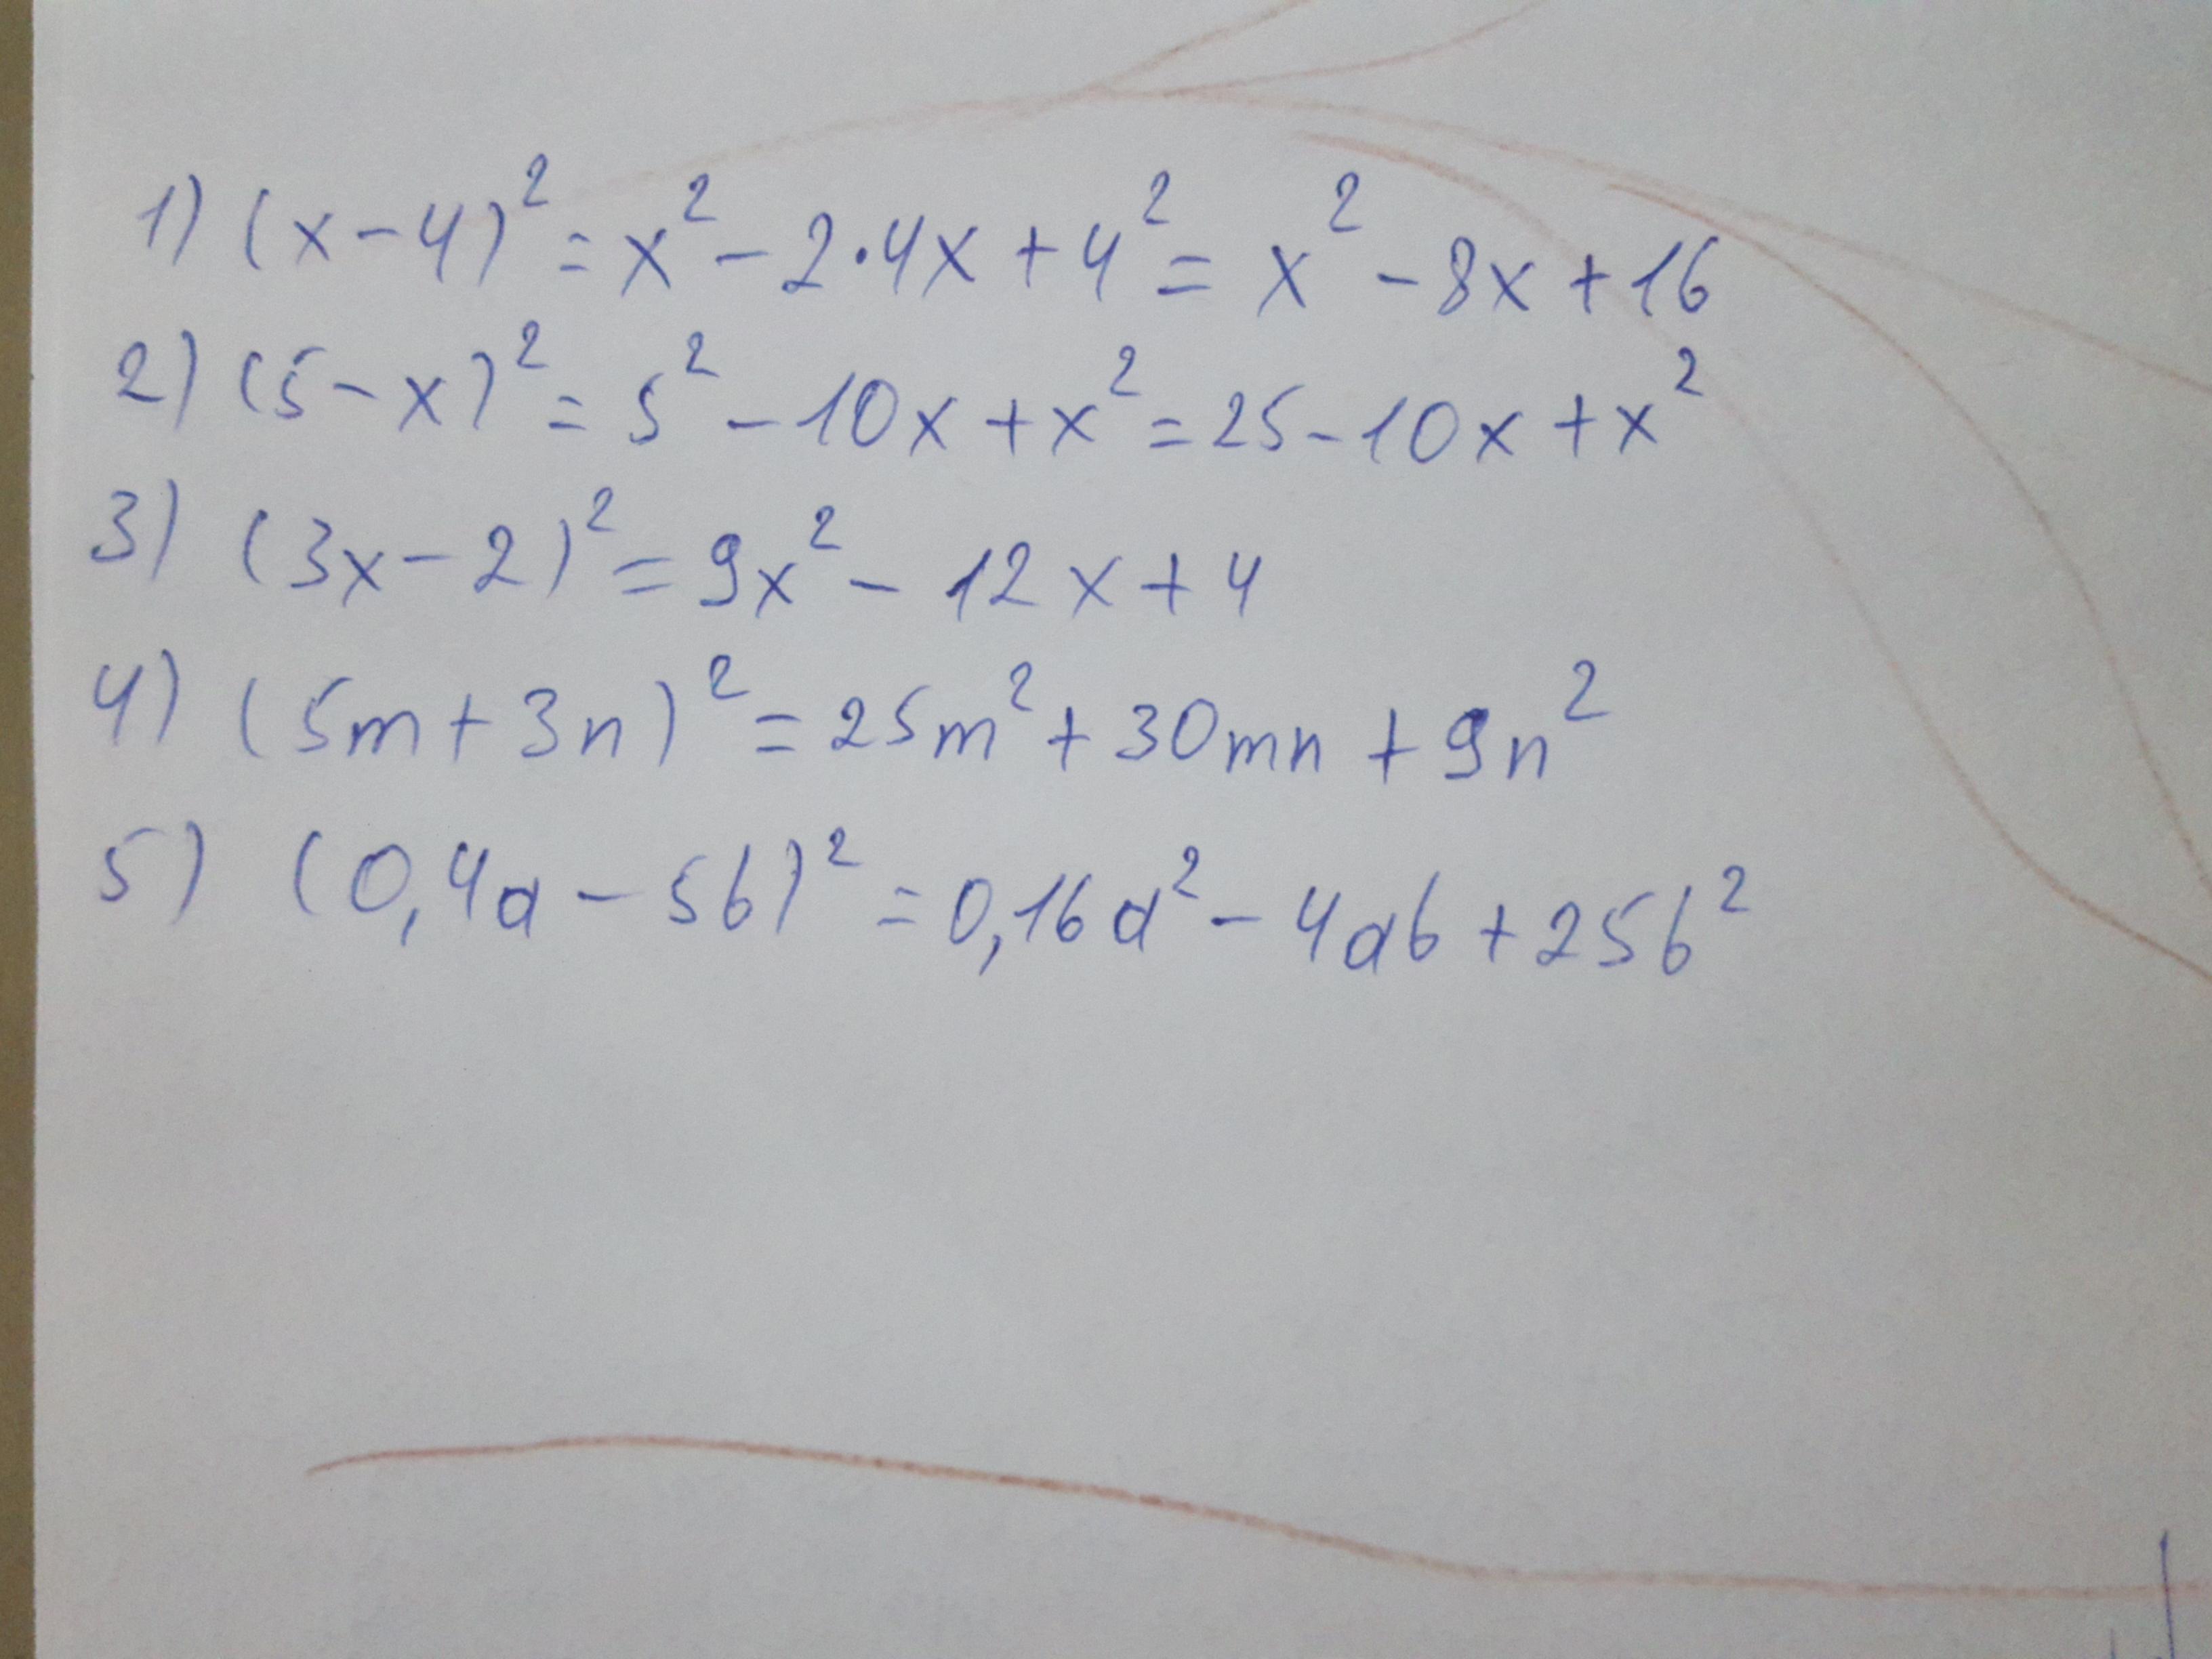 1) (x-4)² = x² - 2·4x + 4² = x² - 8x + 16
2) (5-x)² = 5² - 10x + x² = 25 - 10x + x²
3) (3x-2)² = 9x² - 12x + 4
4) (5m+3n)² = 25m² + 30mn + 9n²
5) (0,4a - 5b)² = 0,16a² - 4ab + 25b²